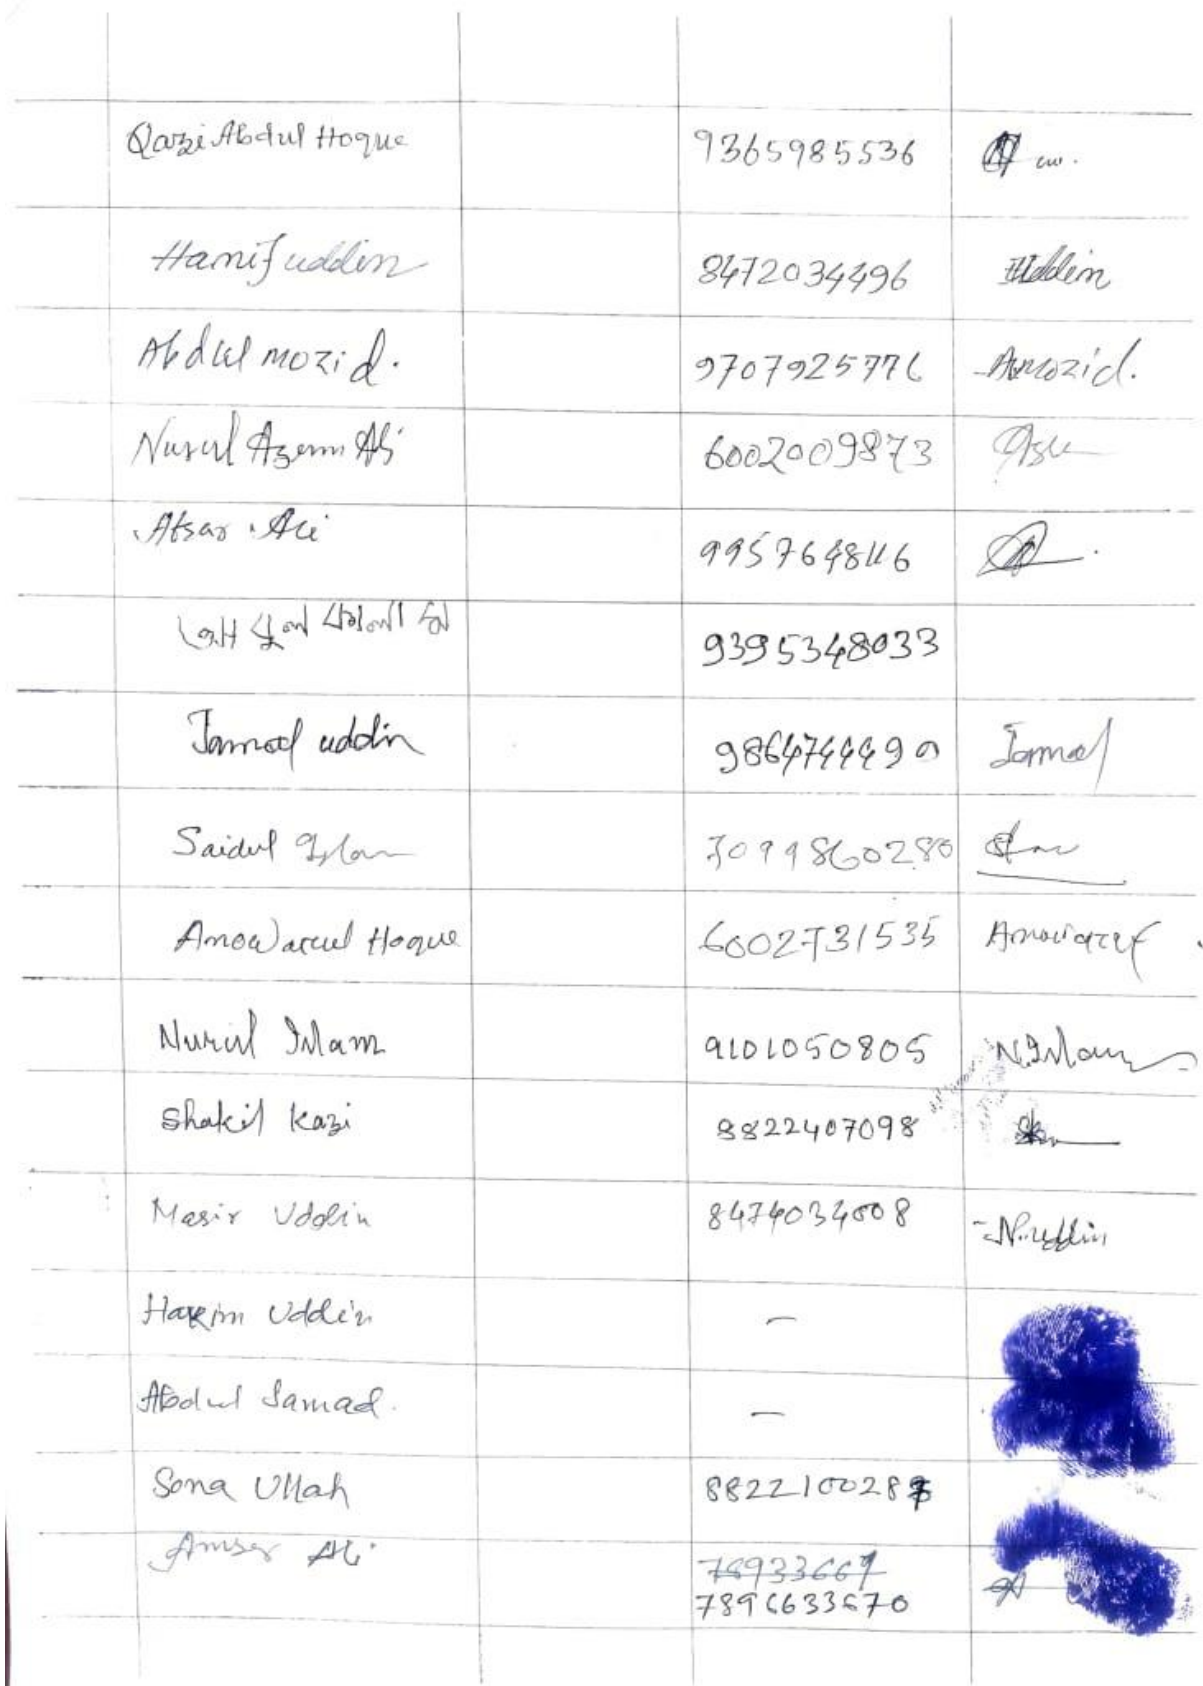 Qazi Abdul Hoque 9365985536
Hanif uddin 8472034496 Uddin
Abdul mozid. 9707925776 A mozid.
Nurul Azom Ali 6002009873
Afsar Ali 9957648116
9395348033
Jamal uddin 9864744490 Jamal
Saidul Islam 7099860280
Anowarul Hoque 6002731535
Nurul Islam 9101050805 N. Islam
Shakil Kazi 8822407098
Masir Uddin 8474034008 N. uddin
Hakim Uddin –
Abdul Samad. –
Sona Ullah 882210028
Amser Ali
7896633670